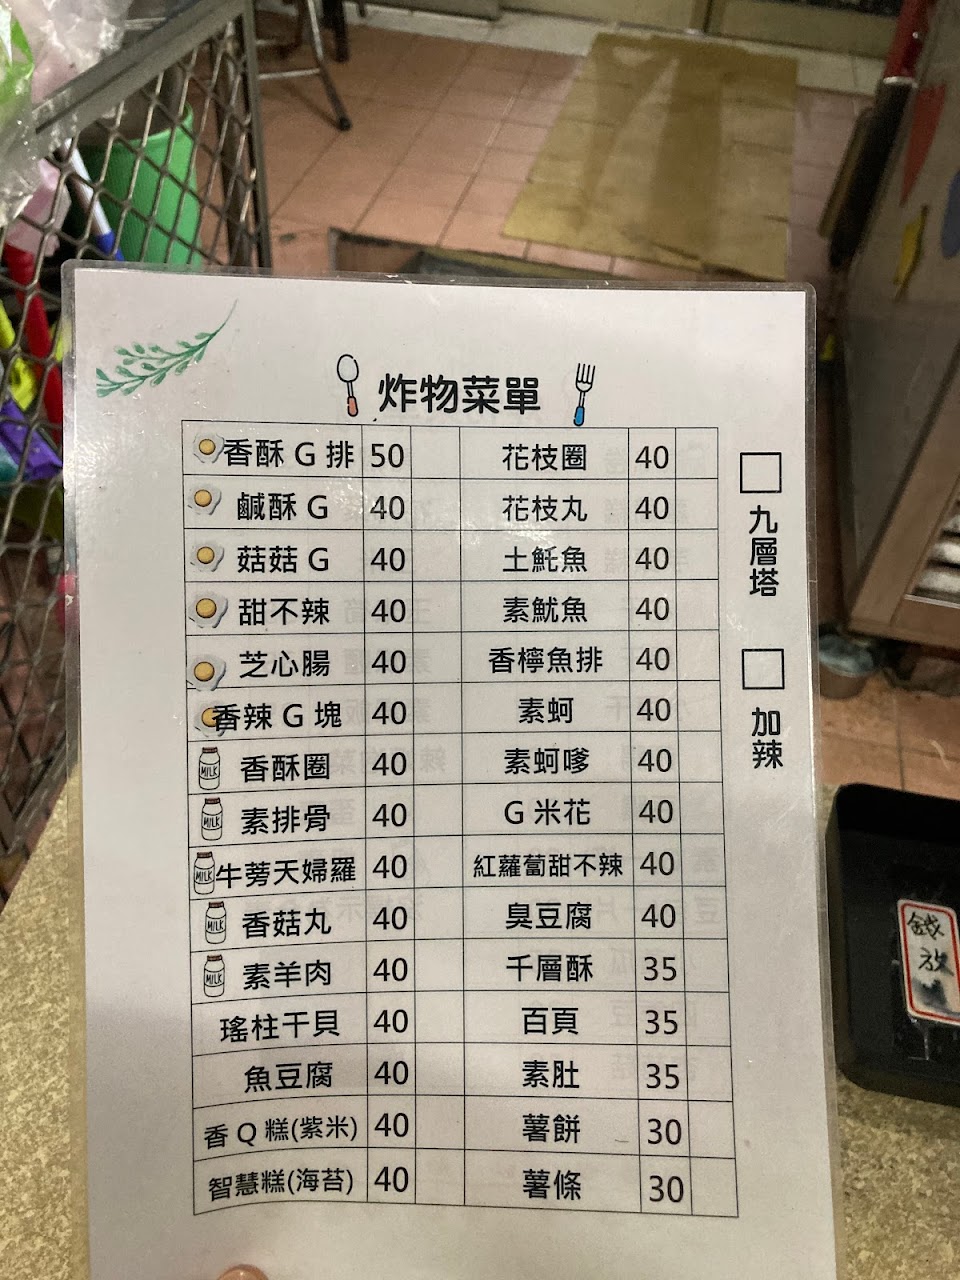 炸物菜單
香酥 G 排 50 花枝圈 40
鹹酥 G 40 花枝丸 40
菇菇 G 40 土魠魚 40
甜不辣 40 素魷魚 40
芝心腸 40 香檸魚排 40
香辣 G 塊 40 素蚵 40
MILK 香酥圈 40 素蚵嗲 40
MILK 素排骨 40 G 米花 40
MILK 牛蒡天婦羅 40 紅蘿蔔甜不辣 40
MILK 香菇丸 40 臭豆腐 40
MILK 素羊肉 40 千層酥 35
瑤柱干貝 40 百頁 35
魚豆腐 40 素肚 35
香 Q 糕(紫米) 40 薯餅 30
智慧糕(海苔) 40 薯條 30
九層塔
加辣
錢
放